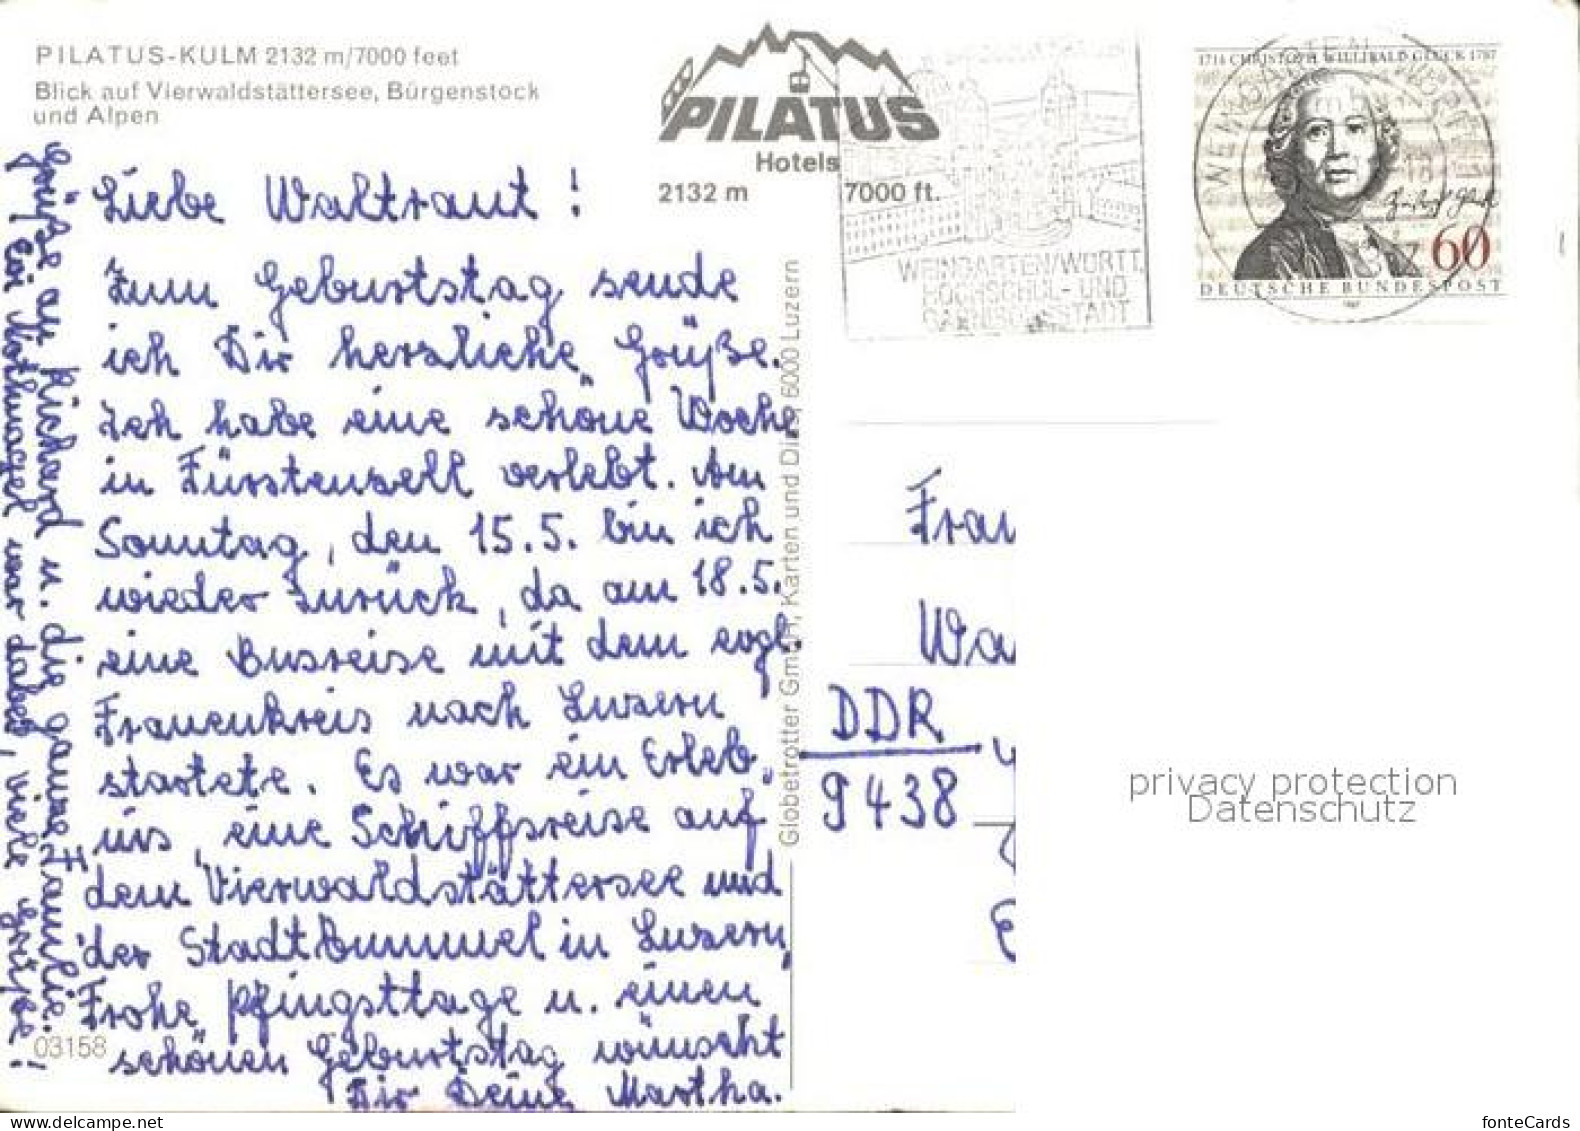 PILATUS-KULM 2132 m/7000 feet
Blick auf Vierwaldstättersee, Bürgenstock
und Alpen
PILATUS
Hotels
2132 m 7000 ft.
Liebe Waltraut!
Zum Geburtstag sende
ich Dir herzliche Grüße.
Ich habe eine schöne Woche
in Fürstenzell verlebt. Am
Sonntag, den 15.5. bin ich
wieder zurück, da am 18.5.
eine Busreise mit dem evgl.
Frauenkreis nach Luzern
startete. Es war ein Erleb-
nis, eine Schiffsreise auf
dem Vierwaldstättersee und
der Stadtbummel in Luzern.
Frohe Pfingsttage u. einen
schönen Geburtstag wünscht
Dir Deine Martha.
Grüße an Richard u. die ganze Familie.
Evi Rothnagel war dabei, viele Grüße!
03158
Globetrotter GmbH, Karten und Dias, 6000 Luzern
WEINGARTEN/WÜRTT.
HOCHSCHUL- UND
GARNISONSSTADT
1714 CHRISTOPH WILLIBALD GLUCK 1787
60
DEUTSCHE BUNDESPOST
1987
WEINGARTEN, WÜRTT
Frau
Wa
DDR
9438
privacy protection
Datenschutz
fonteCards